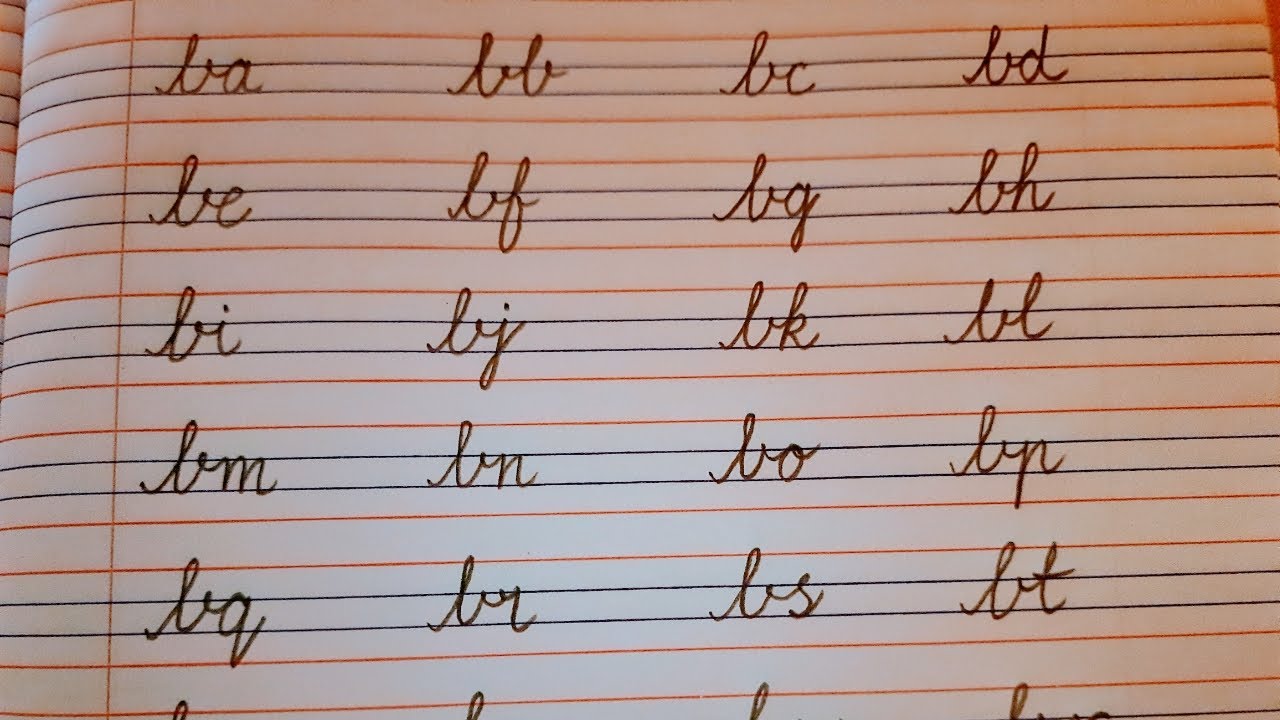 ba bb bc bd
be bf bg bh
bi bj bk bl
bm bn bo bp
bq br bs bt